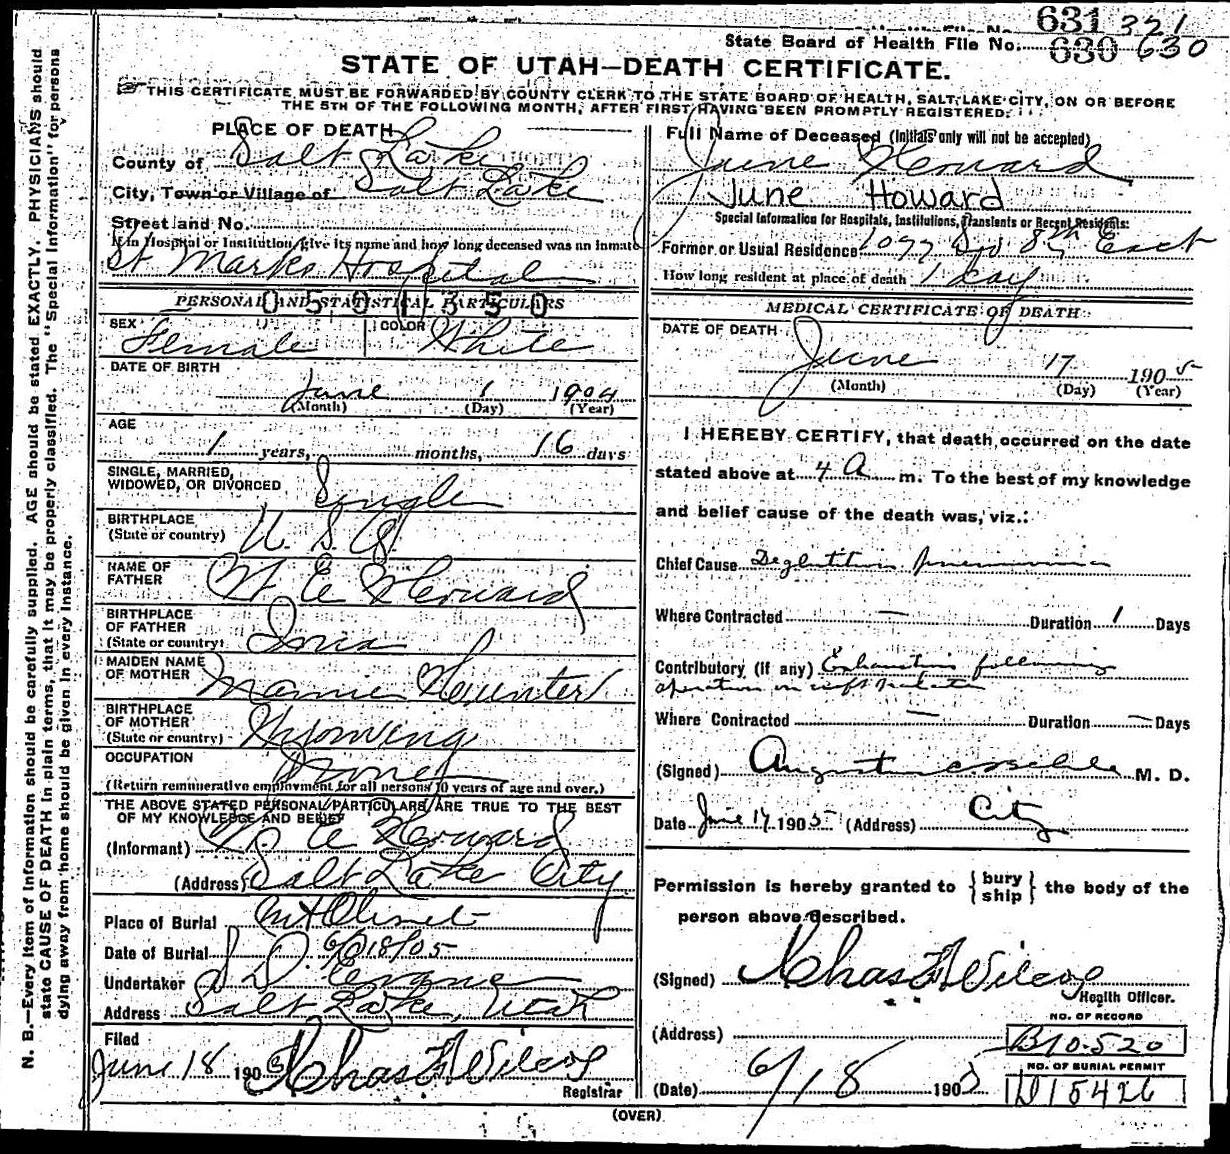 631 321
State Board of Health File No. 630 630
STATE OF UTAH—DEATH CERTIFICATE.
THIS CERTIFICATE MUST BE FORWARDED BY COUNTY CLERK TO THE STATE BOARD OF HEALTH, SALT LAKE CITY, ON OR BEFORE
THE 5TH OF THE FOLLOWING MONTH, AFTER FIRST HAVING BEEN PROMPTLY REGISTERED.
N. B.—Every item of information should be carefully supplied. AGE should be stated EXACTLY. PHYSICIANS should
state CAUSE OF DEATH in plain terms, that it may be properly classified. The "Special Information" for persons
dying away from home should be given in every instance.
PLACE OF DEATH
County of Salt Lake
City, Town or Village of Salt Lake
Street and No.
If in Hospital or Institution, give its name and how long deceased was an inmate
St Marks Hospital
PERSONAL AND STATISTICAL PARTICULARS
0501350
SEX Female COLOR White
DATE OF BIRTH
June 1 1904
(Month) (Day) (Year)
AGE
1 years, months, 16 days
SINGLE, MARRIED,
WIDOWED, OR DIVORCED Single
BIRTHPLACE
(State or country) U. S. A.
NAME OF
FATHER W. E. Howard
BIRTHPLACE
OF FATHER
(State or country)
MAIDEN NAME
OF MOTHER Mamie Hunter
BIRTHPLACE
OF MOTHER
(State or country) Wyoming
OCCUPATION None
(Return remunerative employment for all persons 10 years of age and over.)
THE ABOVE STATED PERSONAL PARTICULARS ARE TRUE TO THE BEST
OF MY KNOWLEDGE AND BELIEF
(Informant) W E Howard
(Address) Salt Lake City
Place of Burial Mt Olivet
Date of Burial 6/18/05
Undertaker S. D. Evans
Address Salt Lake, Utah
Filed
June 18 1905 Chas F Wilcox
Registrar
Full Name of Deceased (Initials only will not be accepted)
June Howard
June Howard
Special Information for Hospitals, Institutions, Transients or Recent Residents:
Former or Usual Residence 1077 So 8th East
How long resident at place of death 1 day
MEDICAL CERTIFICATE OF DEATH
DATE OF DEATH
June 17 1905
(Month) (Day) (Year)
I HEREBY CERTIFY, that death occurred on the date
stated above at 4 A m. To the best of my knowledge
and belief cause of the death was, viz.:
Chief Cause Deglutition pneumonia
Where Contracted — Duration 1 Days
Contributory (if any) Exhaustion following
operation on cleft palate
Where Contracted — Duration — Days
(Signed) M. D.
Date June 17 1905 (Address) City
Permission is hereby granted to {bury ship} the body of the
person above described.
(Signed) Chas F Wilcox
Health Officer.
(Address)
NO. OF RECORD
B10520
NO. OF BURIAL PERMIT
D15426
(Date) 6/18 1905
(OVER)